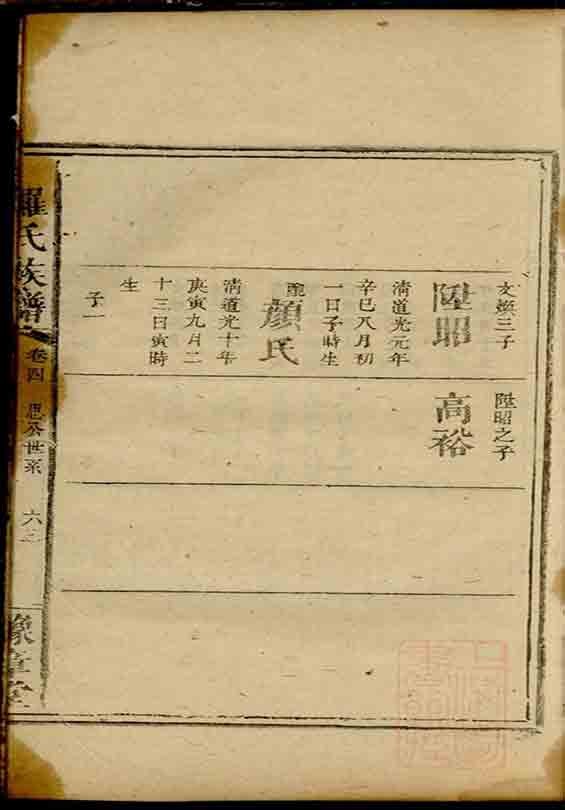 文煥三子
陞昭
清道光元年
辛巳八月初
一日子時生
配
顏氏
清道光十年
庚寅九月二
十三日寅時
生
子一
陞昭之子
高裕
羅氏族譜
卷四
思公世系
六
豫章堂